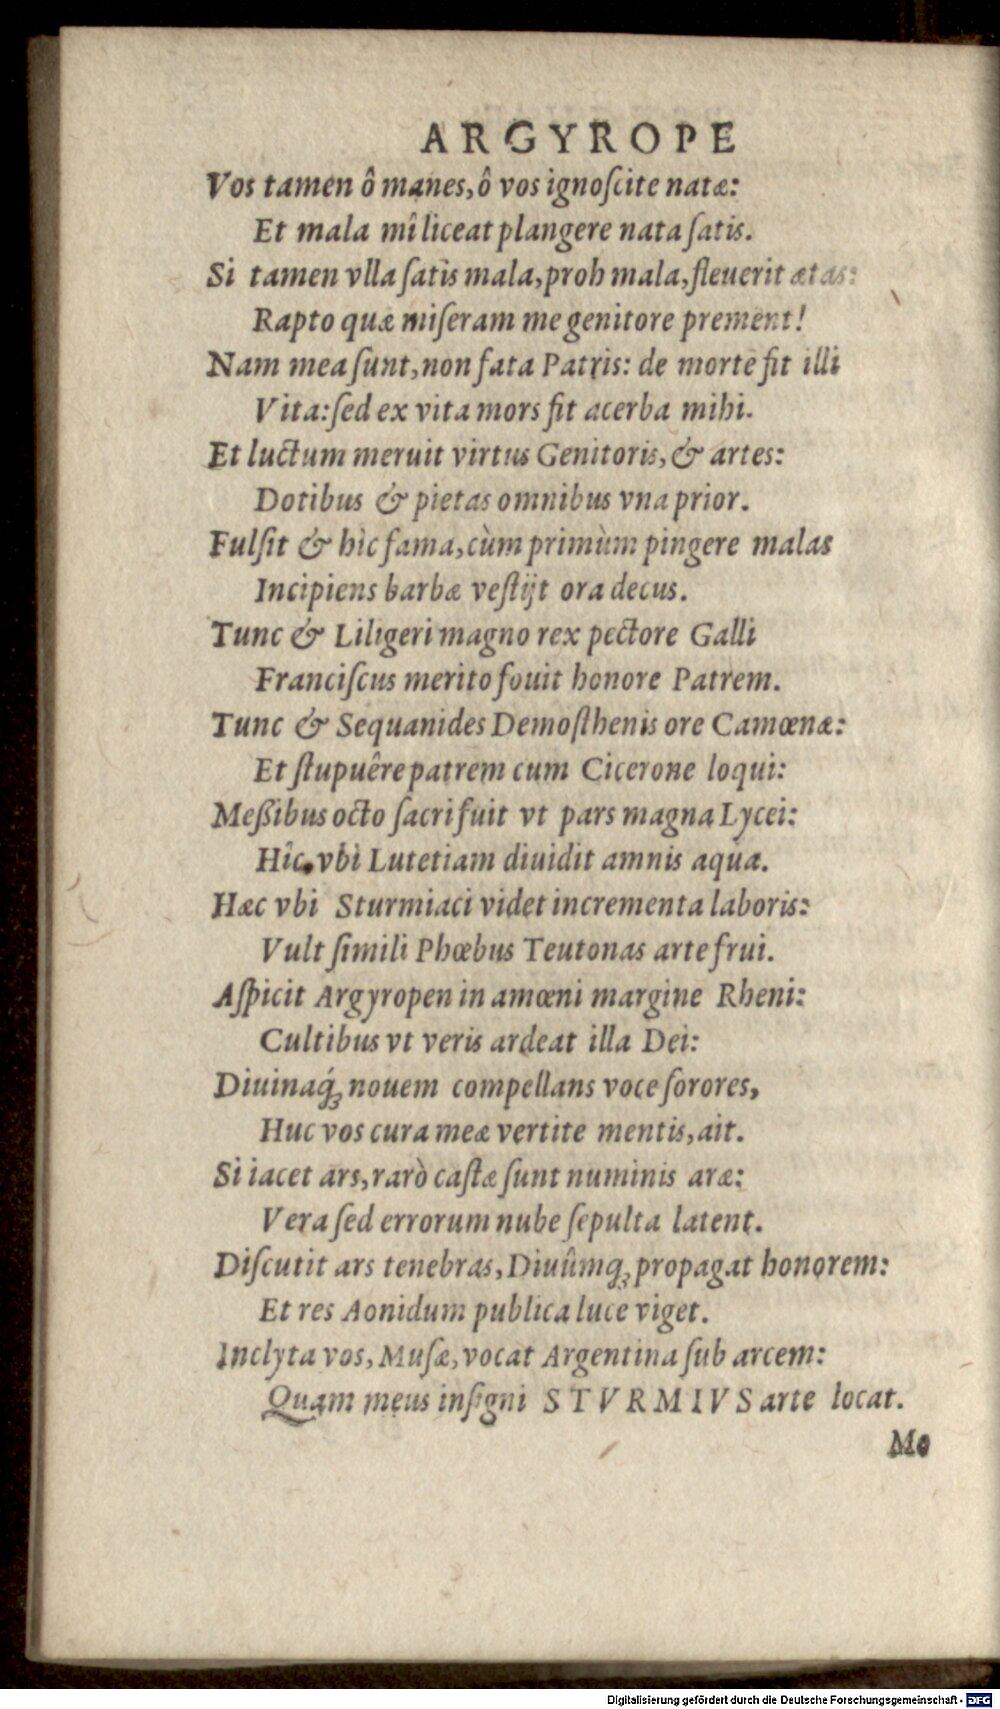 ARGYROPE
Vos tamen ô manes, ô vos ignoſcite natæ:
Et mala mî liceat plangere nata ſatis.
Si tamen vlla ſatìs mala, proh mala, fleuerit ætas:
Rapto quæ miſeram me genitore prement!
Nam mea ſunt, non fata Patris: de morte fit illi
Vita: ſed ex vita mors fit acerba mihi.
Et luctum meruit virtus Genitoris, & artes:
Dotibus & pietas omnibus vna prior.
Fulſit & hìc fama, cùm primùm pingere malas
Incipiens barbæ veſtijt ora decus.
Tunc & Liligeri magno rex pectore Galli
Franciſcus merito fouit honore Patrem.
Tunc & Sequanides Demoſthenis ore Camœnæ:
Et ſtupuêre patrem cum Cicerone loqui:
Meßibus octo ſacri fuit vt pars magna Lycei:
Hîc, vbi Lutetiam diuidit amnis aqua.
Hæc vbi Sturmiaci videt incrementa laboris:
Vult ſimili Phœbus Teutonas arte frui.
Aſpicit Argyropen in amœni margine Rheni:
Cultibus vt veris ardeat illa Dei:
Diuinaq́; nouem compellans voce ſorores,
Huc vos cura meæ vertite mentis, ait.
Si iacet ars, rarò caſtæ ſunt numinis aræ:
Vera ſed errorum nube ſepulta latent.
Diſcutit ars tenebras, Diuûmq; propagat honorem:
Et res Aonidum publica luce viget.
Inclyta vos, Muſæ, vocat Argentina ſub arcem:
Quam meus inſigni STVRMIVS arte locat.
Me
Digitalisierung gefördert durch die Deutsche Forschungsgemeinschaft - DFG